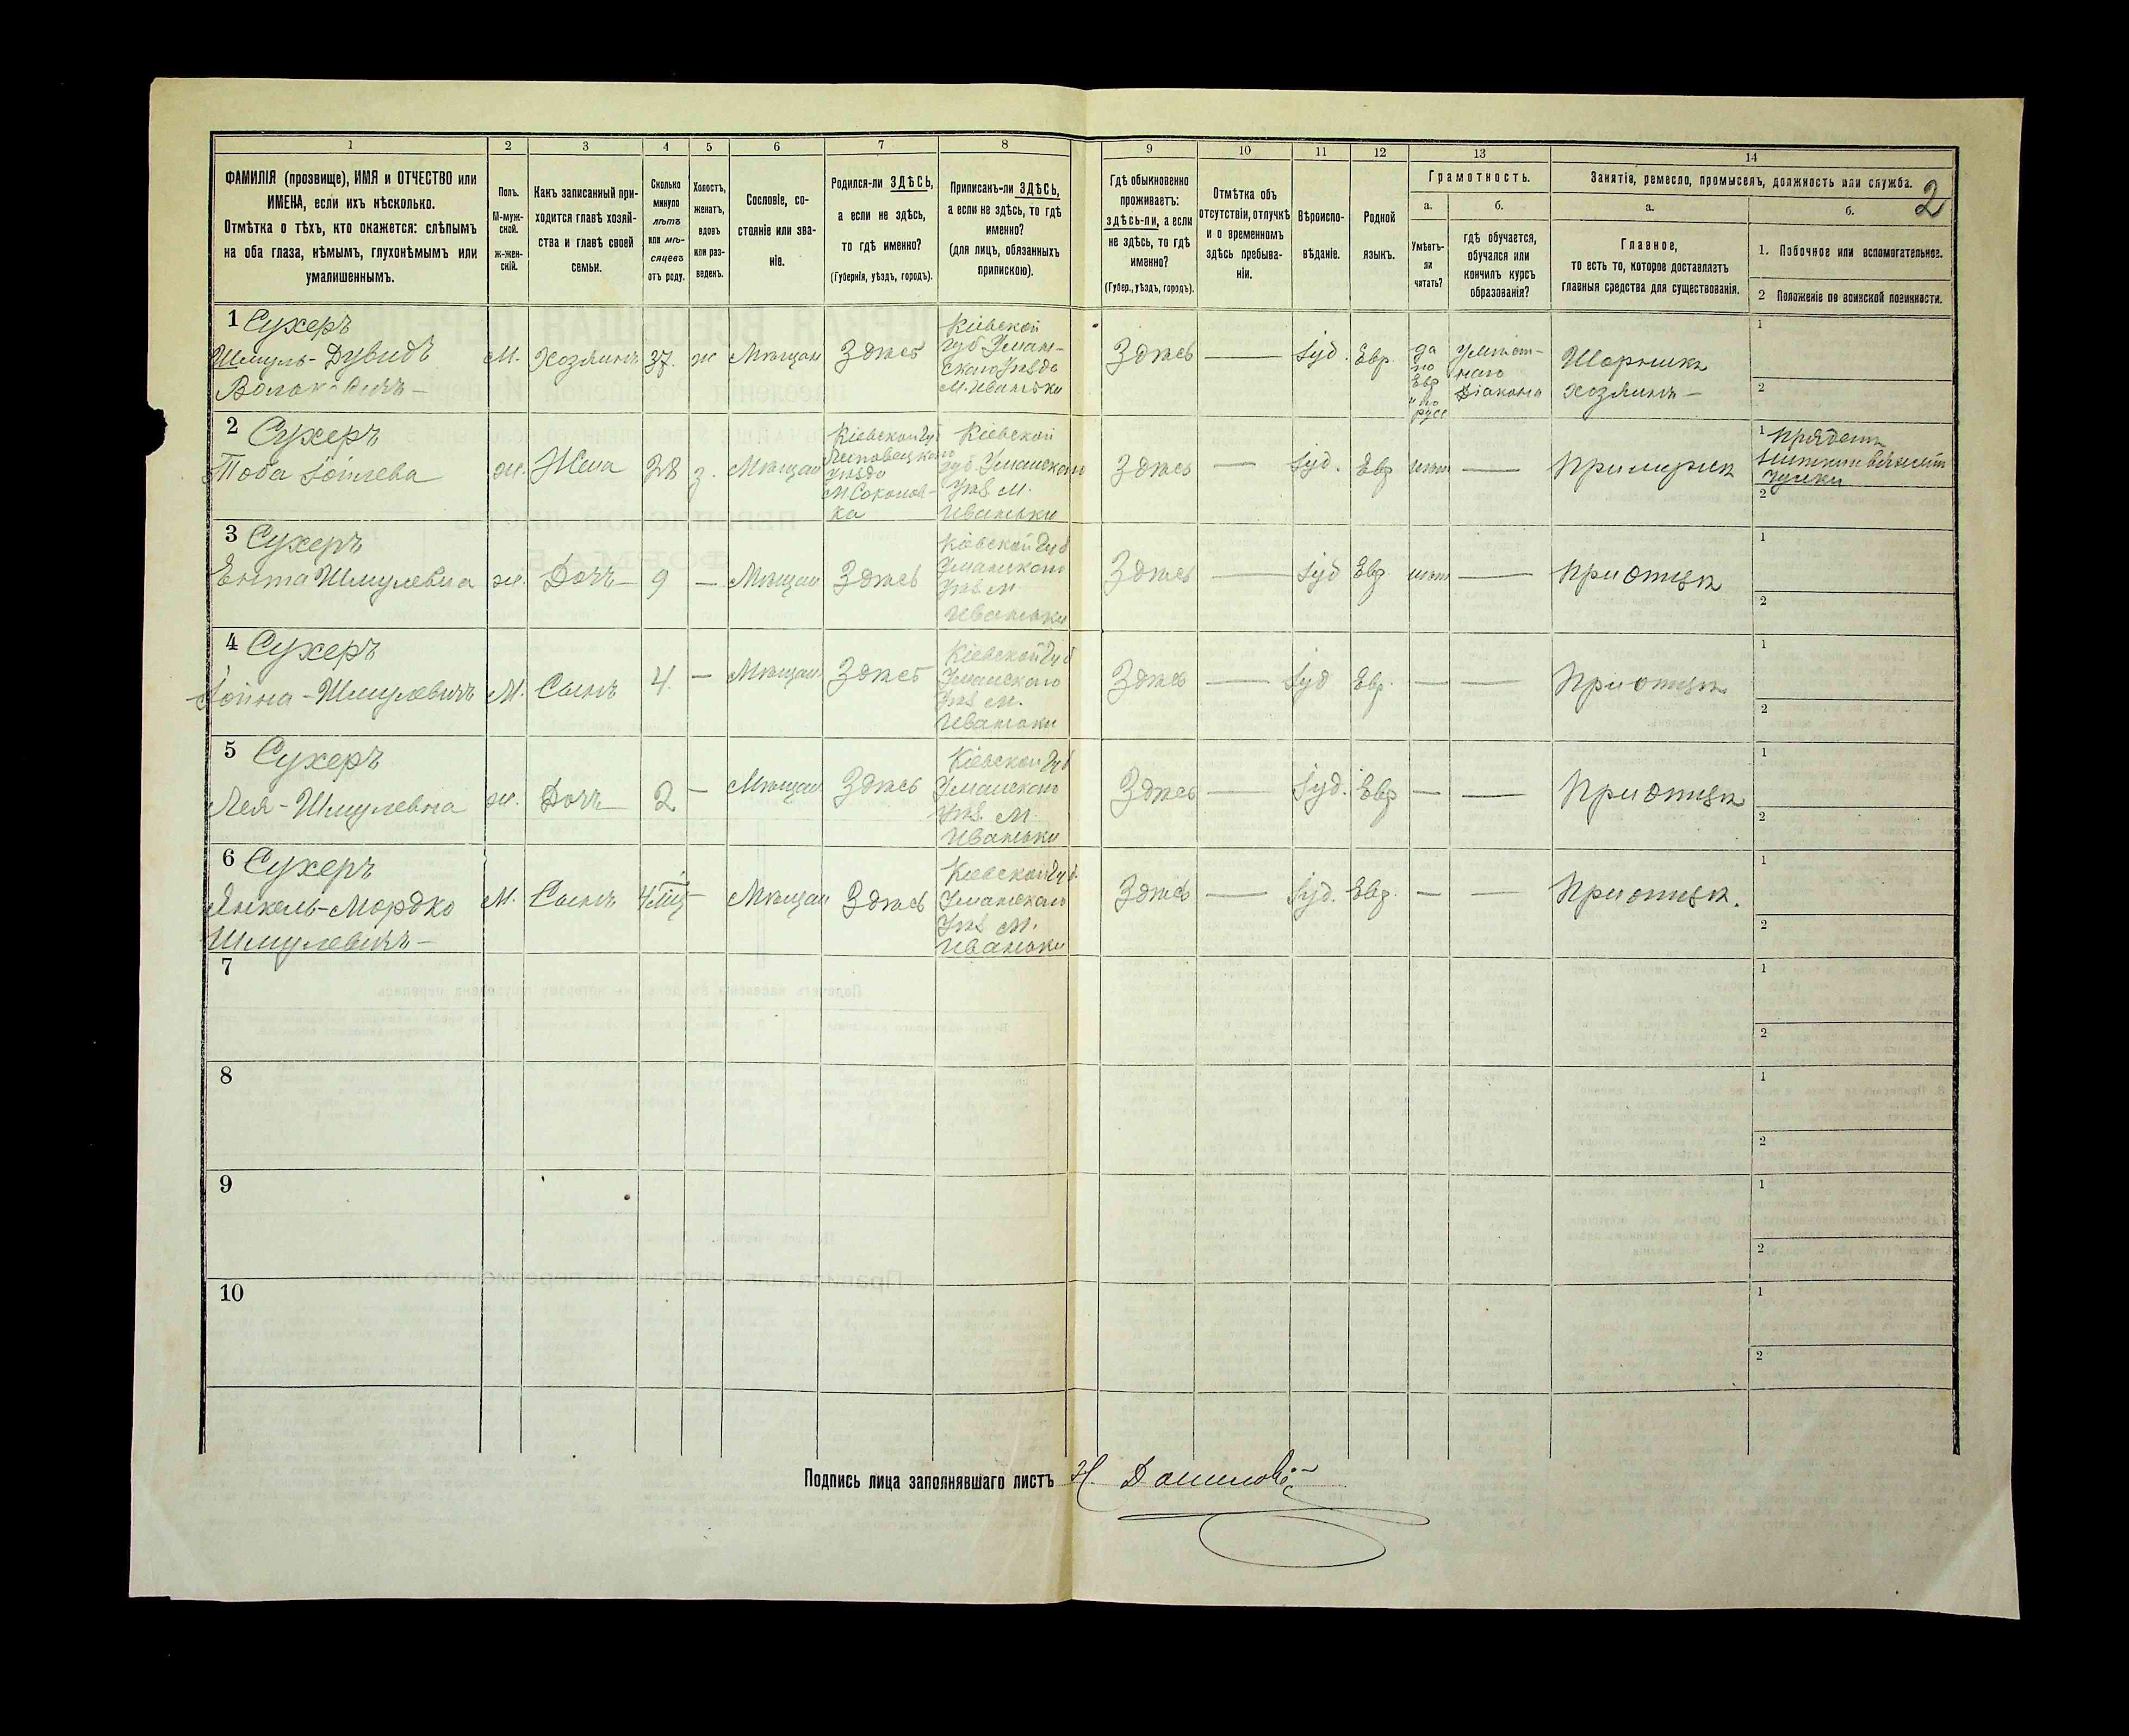 1
2
3
4
5
6
7
8
9
10
11
12
13
14
ФАМИЛІЯ (прозвище), ИМЯ и ОТЧЕСТВО или
ИМЕНА, если ихъ нѣсколько.
Отмѣтка о тѣхъ, кто окажется: слѣпымъ
на оба глаза, нѣмымъ, глухонѣмымъ или
умалишеннымъ.
Полъ.
М-муж-
ской.
ж-жен-
скій.
Какъ записанный при-
ходится главѣ хозяй-
ства и главѣ своей
семьи.
Сколько
минуло
лѣтъ
или мѣ-
сяцевъ
отъ роду.
Холостъ,
женатъ,
вдовъ
или раз-
веденъ.
Сословіе, со-
стояніе или зва-
ніе.
Родился-ли ЗДѢСЬ,
а если не здѣсь,
то гдѣ именно?
(Губернія, уѣздъ, городъ).
Приписанъ-ли ЗДѢСЬ,
а если не здѣсь, то гдѣ
именно?
(для лицъ, обязанныхъ
припискою).
Гдѣ обыкновенно
проживаетъ:
здѣсь-ли, а если
не здѣсь, то гдѣ
именно?
(Губер., уѣздъ, городъ).
Отмѣтка объ
отсутствіи, отлучкѣ
и о временномъ
здѣсь пребыва-
ніи.
Вѣроиспо-
вѣданіе.
Родной
языкъ.
Грамотность.
а.
Умѣетъ-
ли
читать?
б.
гдѣ обучается,
обучался или
кончилъ курсъ
образованія?
Занятіе, ремесло, промыселъ, должность или служба.
2
а.
Главное,
то есть то, которое доставляетъ
главныя средства для существованія.
б.
1. Побочное или вспомогательное.
2 Положеніе по воинской повинности.
1 Сухеръ
Шмуль-Дувидъ
М.
Хозяинъ
37.
ж
Мѣщан
Здѣсь
Кіевской
губ Уман-
скаго Уѣзда
М. Иваньки
Здѣсь
—
Іуд.
Евр.
да
по
Евр
и по
русс
Діакона
Шорникъ
Хозяинъ —
1
2
2 Сухеръ
Тоба
ж.
Жена
28
з.
Мѣщан
Кіевской Губ
Липовецкаго
Уѣзда
М Соколов-
ка
Кіевской
губ. Уманскаго
Уѣз. М.
Иваньки
Здѣсь
—
Іуд.
Евр
нѣт
—
При мужѣ
1
2
3 Сухеръ
Ента Шмулевна
ж.
Дочь
9
—
Мѣщан
Здѣсь
Кіевской Губ
Уманскаго
Уѣз. М
Иваньки
Здѣсь
—
Іуд
Евр.
нѣт
—
При отцѣ
1
2
4 Сухеръ
Шмулевичъ
М.
Сынъ
4.
—
Мѣщан.
Здѣсь
Кіевской Губ
Уманскаго
Уѣз М.
Иваньки
Здѣсь
—
Іуд
Евр.
—
—
При отцѣ
1
2
5 Сухеръ
Лея-Шмулевна
ж.
Дочь
2
—
Мѣщан
Здѣсь
Кіевской Губ
Уманскаго
Уѣз. М
Иваньки
Здѣсь
—
Іуд.
Евр
—
—
При отцѣ
1
2
6 Сухеръ
Янкель-Мордко
Шмулевичъ —
М.
Сынъ
4 мѣс
—
Мѣщан
Здѣсь
Кіевской Губ.
Уманскаго
Уѣз М.
Иваньки
Здѣсь
—
Іуд.
Евр.
—
—
При отцѣ.
1
2
7
1
2
8
1
2
9
1
2
10
1
2
Подпись лица заполнявшаго листъ